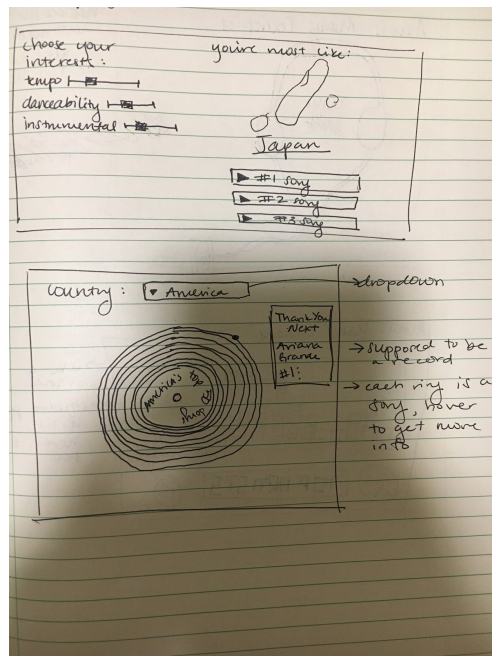 choose your
interests:
tempo
danceability
instrumental
you're most like:
Japan
#1 song
#2 song
#3 song
country:
America
→ dropdown
Thank You
Next
Ariana
Grande
#1:
America's top
songs
→ supposed to be
a record
→ each ring is a
song, hover
to get more
info